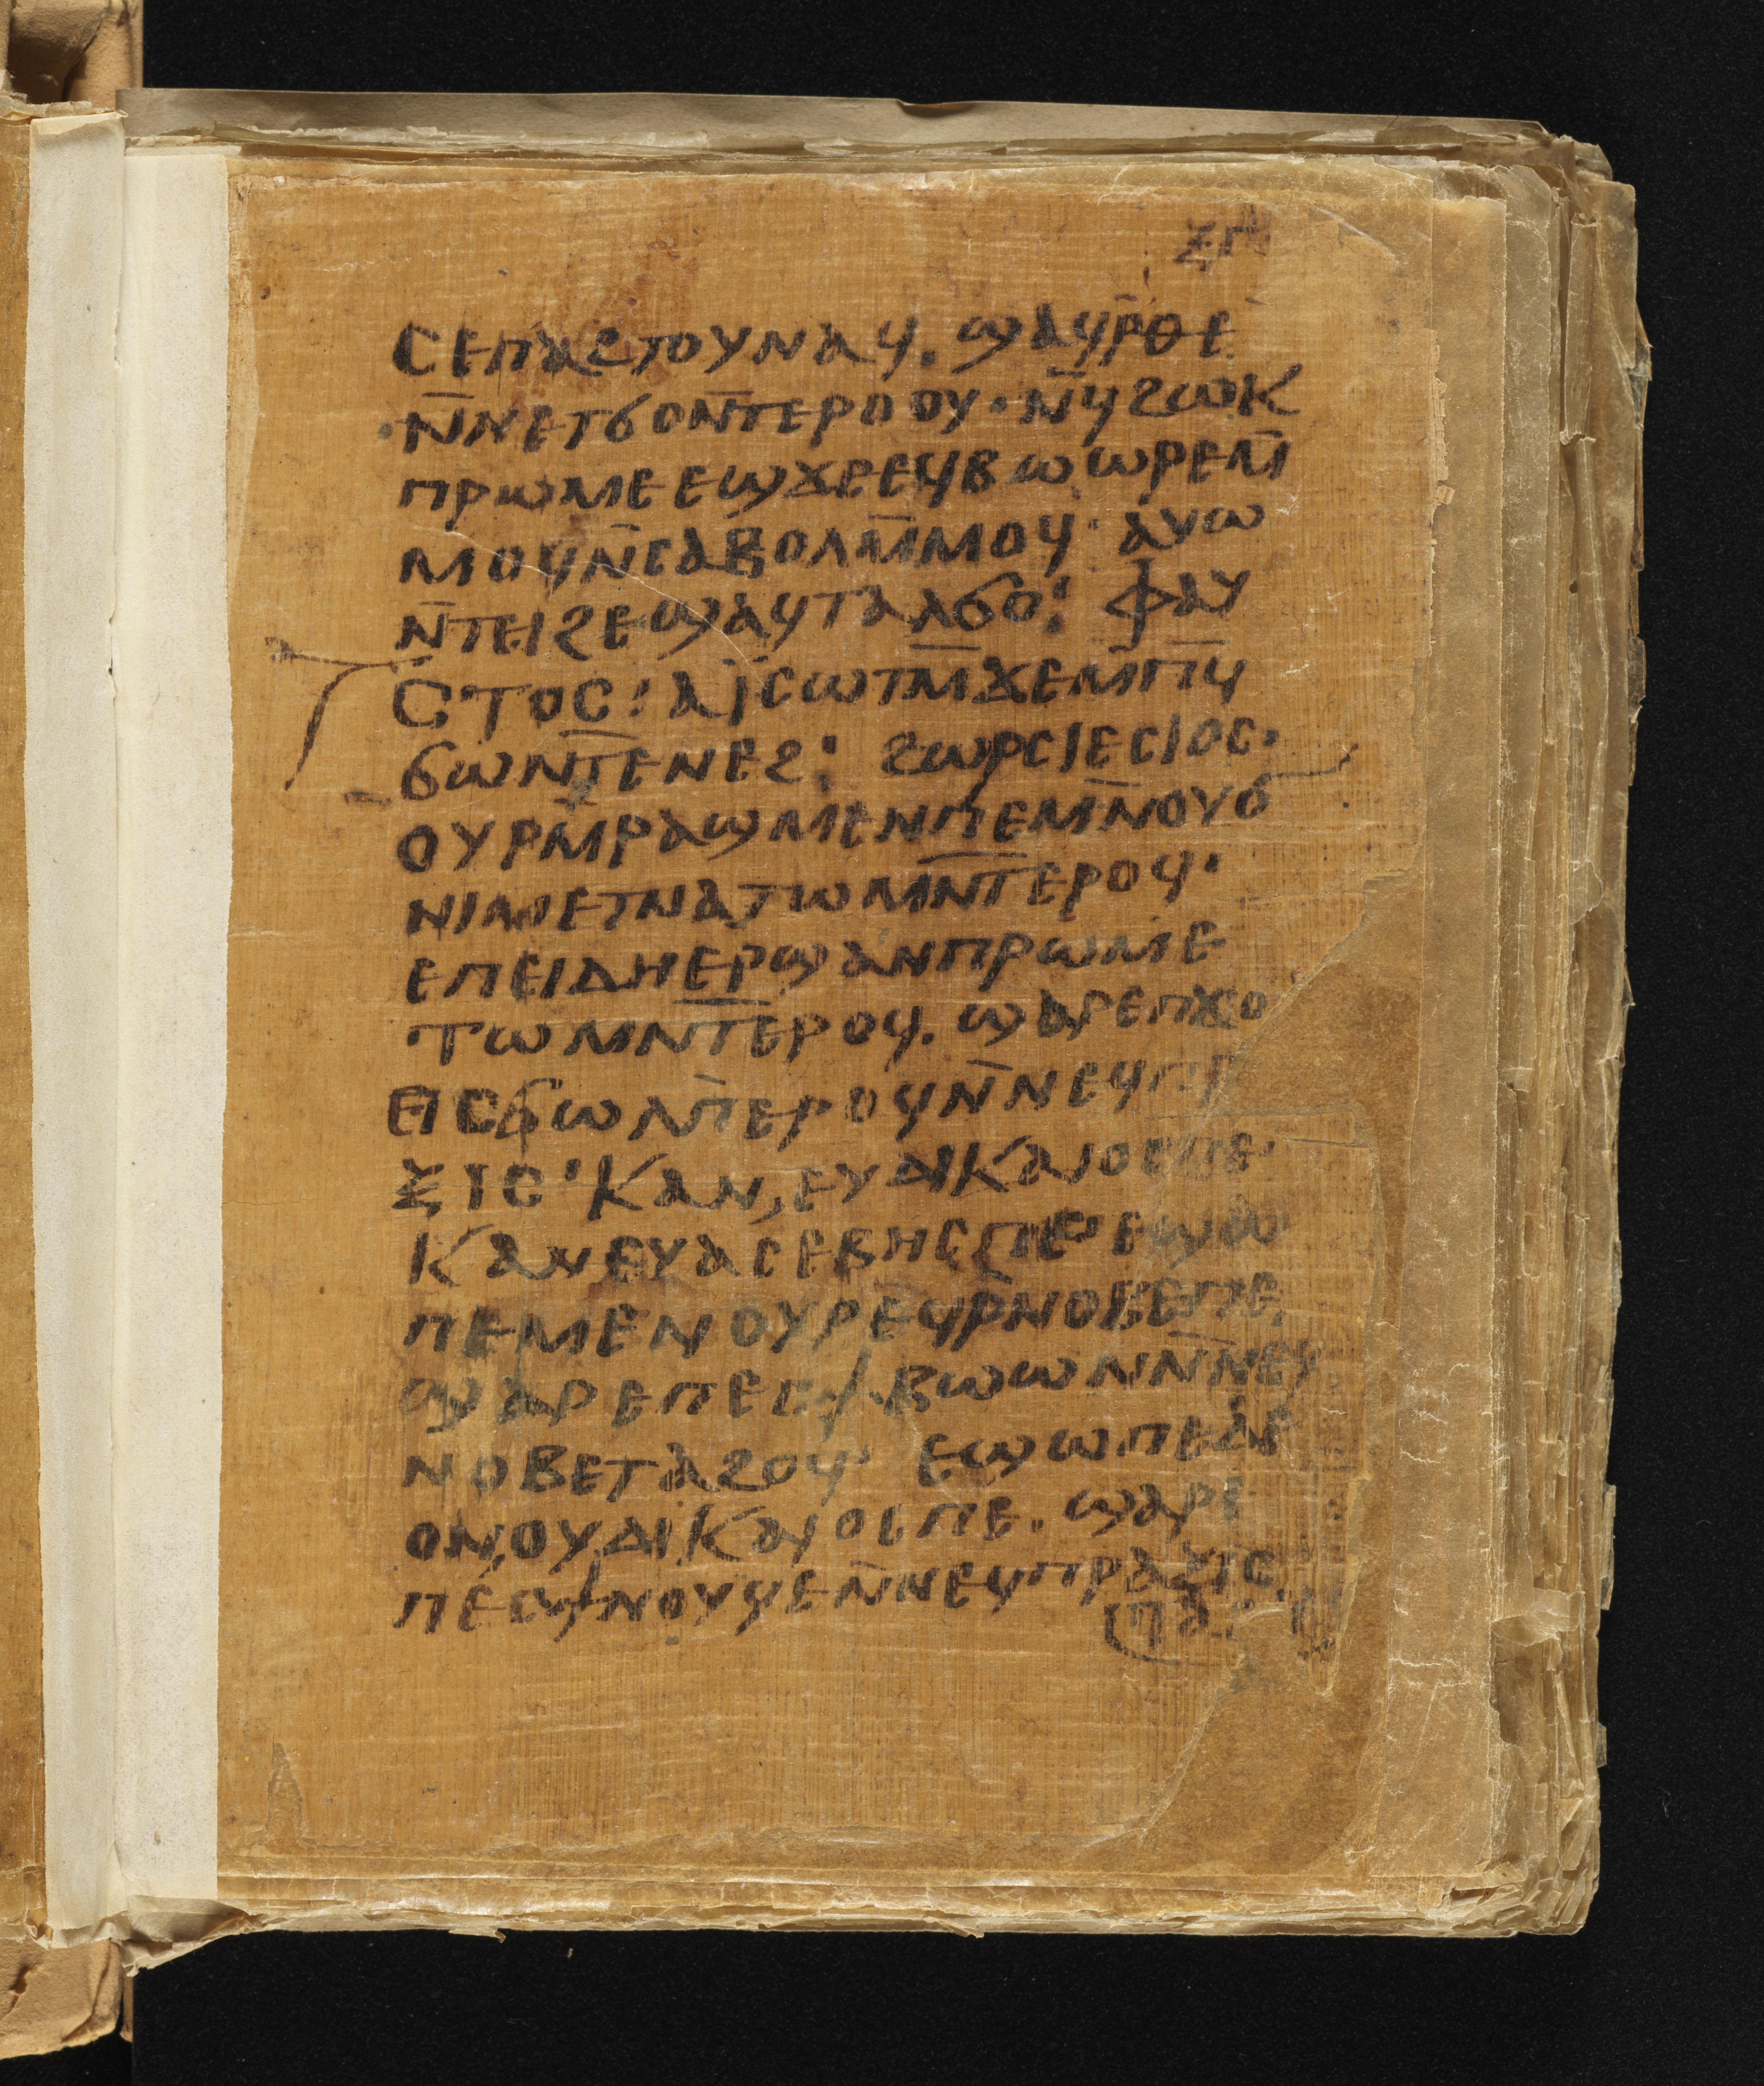 ⲝⲅ
ⲥⲉⲡⲁϩⲧⲟⲩⲛⲁϥ. ϣⲁϥⲣ̄ⲑⲉ
ⲛ̄ⲛⲉⲧϭⲟⲛ̄ⲧⲉⲣⲟⲟⲩ· ⲛ̄ϥϩⲱⲕ
ⲡⲣⲱⲙⲉⲉϣϫⲉⲉϥⲃⲱⲱⲣⲉⲙ̄
ⲙⲟϥⲛ̄ⲥⲁⲃⲟⲗⲙ̄ⲙⲟϥ· ⲁⲩⲱ
ⲛ̄ⲧⲉⲓϩⲉϣⲁϥⲧⲁⲗϭⲟ: ⲫⲁⲩ
ⲥⲧⲟⲥ: ⲁⲓⲥⲱⲧⲙ̄ϫⲉⲙ̄ⲡϥ̄
ϭⲱⲛⲧ̄ⲉⲛⲉϩ: ϩⲱⲣⲥⲓⲉⲥⲓⲟⲥ.
ⲟⲩⲣⲙ̄ⲣⲁϣⲙⲉⲛⲡⲉⲙⲛ̄ⲛⲟⲩϭ
ⲛⲓⲙⲉⲧⲛⲁⲧⲱⲙⲛ̄ⲧⲉⲣⲟϥ·
ⲉⲡⲉⲓⲇⲏⲉⲣϣⲁⲛⲡⲣⲱⲙⲉ
ⲧⲱⲙⲛ̄ⲧⲉⲣⲟϥ. ϣⲁⲣⲉⲡϫⲟ
ⲉⲓⲥϭⲱⲗⲡ̄ⲉⲣⲟϥⲛ̄ⲛⲉϥⲡⲣ
ⲝⲓⲥ· ⲕⲁⲛ, ⲉⲩⲇⲓⲕⲁⲓⲟⲥⲡⲉ·
ⲕⲁⲛⲉⲩⲁⲥⲉⲃⲏⲥⲡⲉ· ⲉϣⲱ
ⲡⲉⲙⲉⲛⲟⲩⲣⲉϥⲣ̄ⲛⲟⲃⲉⲡⲉ,
ϣⲁⲣⲉⲡⲉⲥϯⲃⲱⲱⲛⲛ̄ⲛⲉϥ
ⲛⲟⲃⲉⲧⲁϩⲟϥ· ⲉϣⲱⲡⲉⲇⲉ
ⲟⲛ,ⲟⲩⲇⲓⲕⲁⲓⲟⲥⲡⲉ. ϣⲁⲣⲉ
ⲡⲉⲥϯⲛⲟⲩϥⲉⲛ̄ⲛⲉϥⲡⲣⲁⲝⲓⲥ